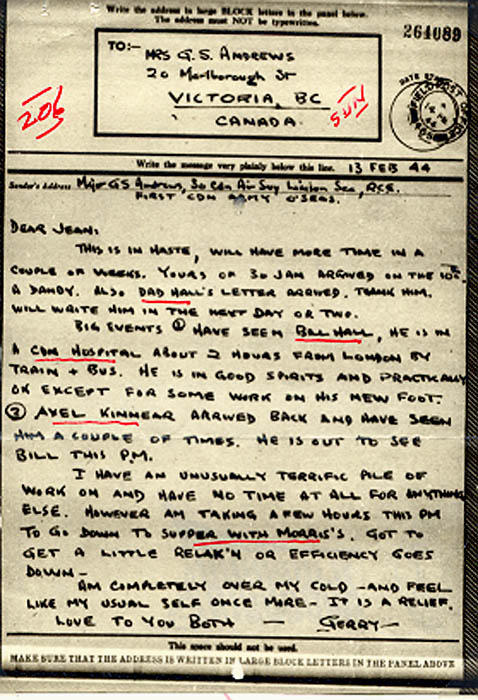 Write the address in large BLOCK letters in the panel below.
The address must NOT be typewritten.
264089
TO:-
MRS G. S. ANDREWS
20 Marlborough St
VICTORIA, BC
CANADA.
206
SUN
FIELD POST OFFICE
Write the message very plainly below this line. 13 FEB 44
Sender's Address Major G S Andrews, 30 Cdn Air Svy Liaison Sec, RCE.
FIRST CDN ARMY O'SEAS.
DEAR JEAN:
THIS IS IN HASTE, WILL HAVE MORE TIME IN A
COUPLE OF WEEKS. YOURS OF 30 JAN ARRIVED ON THE 10th.
A DANDY. ALSO DAD HALL'S LETTER ARRIVED. THANK HIM.
WILL WRITE HIM IN THE NEXT DAY OR TWO.
BIG EVENTS ① HAVE SEEN BILL HALL, HE IS IN
A CDN HOSPITAL ABOUT 2 HOURS FROM LONDON BY
TRAIN + BUS. HE IS IN GOOD SPIRITS AND PRACTICALLY
OK EXCEPT FOR SOME WORK ON HIS NEW FOOT.
② AXEL KINNEAR ARRIVED BACK AND HAVE SEEN
HIM A COUPLE OF TIMES. HE IS OUT TO SEE
BILL THIS P.M.
I HAVE AN UNUSUALLY TERRIFIC PILE OF
WORK ON AND HAVE NO TIME AT ALL FOR ANYTHING
ELSE. HOWEVER AM TAKING A FEW HOURS THIS PM
TO GO DOWN TO SUPPER WITH MORRIS'S. GOT TO
GET A LITTLE RELAX'N OR EFFICIENCY GOES
DOWN -
AM COMPLETELY OVER MY COLD - AND FEEL
LIKE MY USUAL SELF ONCE MORE - IT IS A RELIEF.
LOVE TO YOU BOTH - GERRY -
This space should not be used.
MAKE SURE THAT THE ADDRESS IS WRITTEN IN LARGE BLOCK LETTERS IN THE PANEL ABOVE